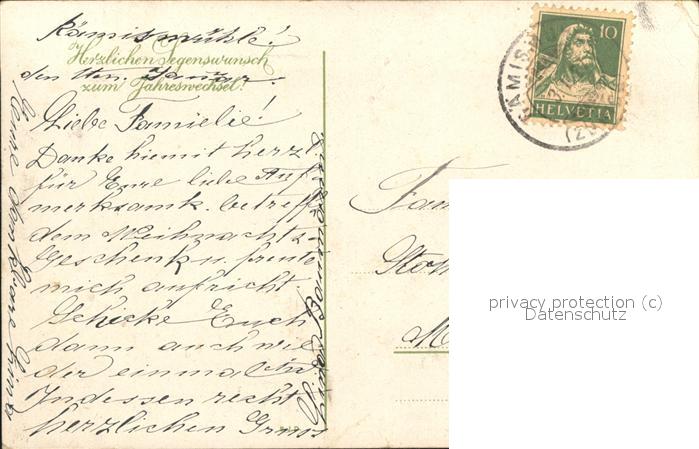 Kämismühle!
Herzlichen Segenswunsch
zum Jahreswechsel!
den 1ten. Januar.
Liebe Famielie!
Danke hiemit herzl
für Eure liebe Auf
merksamk. betreff
dem Weihnachts-
Geschenk u. freute
mich aufricht
Schicke Euch
dann auch wie
der einmal
Indessen recht
herzlichen Gruss
Eure dankbare
10
HELVETIA
KÄMISM
(ZÜ
Fam
privacy protection (c)
Datenschutz